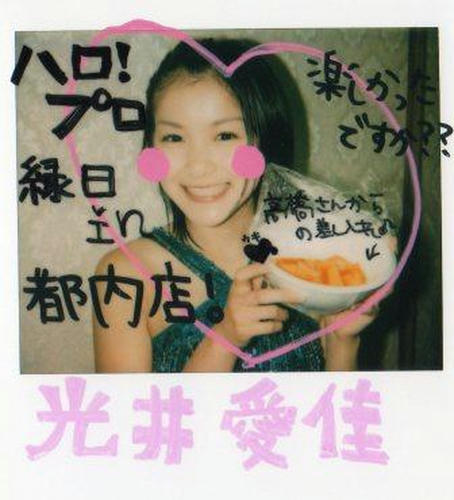 ハロ!
プロ
縁日
in
都内店!
楽しかった
ですか??
高橋さんから
の差し入れ
カキ
光井愛佳